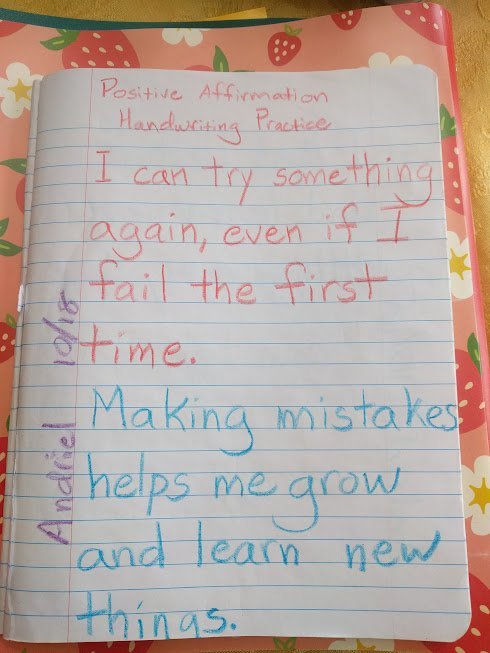 Positive Affirmation
Handwriting Practice
I can try something
again, even if I
fail the first
time.
Making mistakes
helps me grow
and learn new
things.
Andriel 10/18